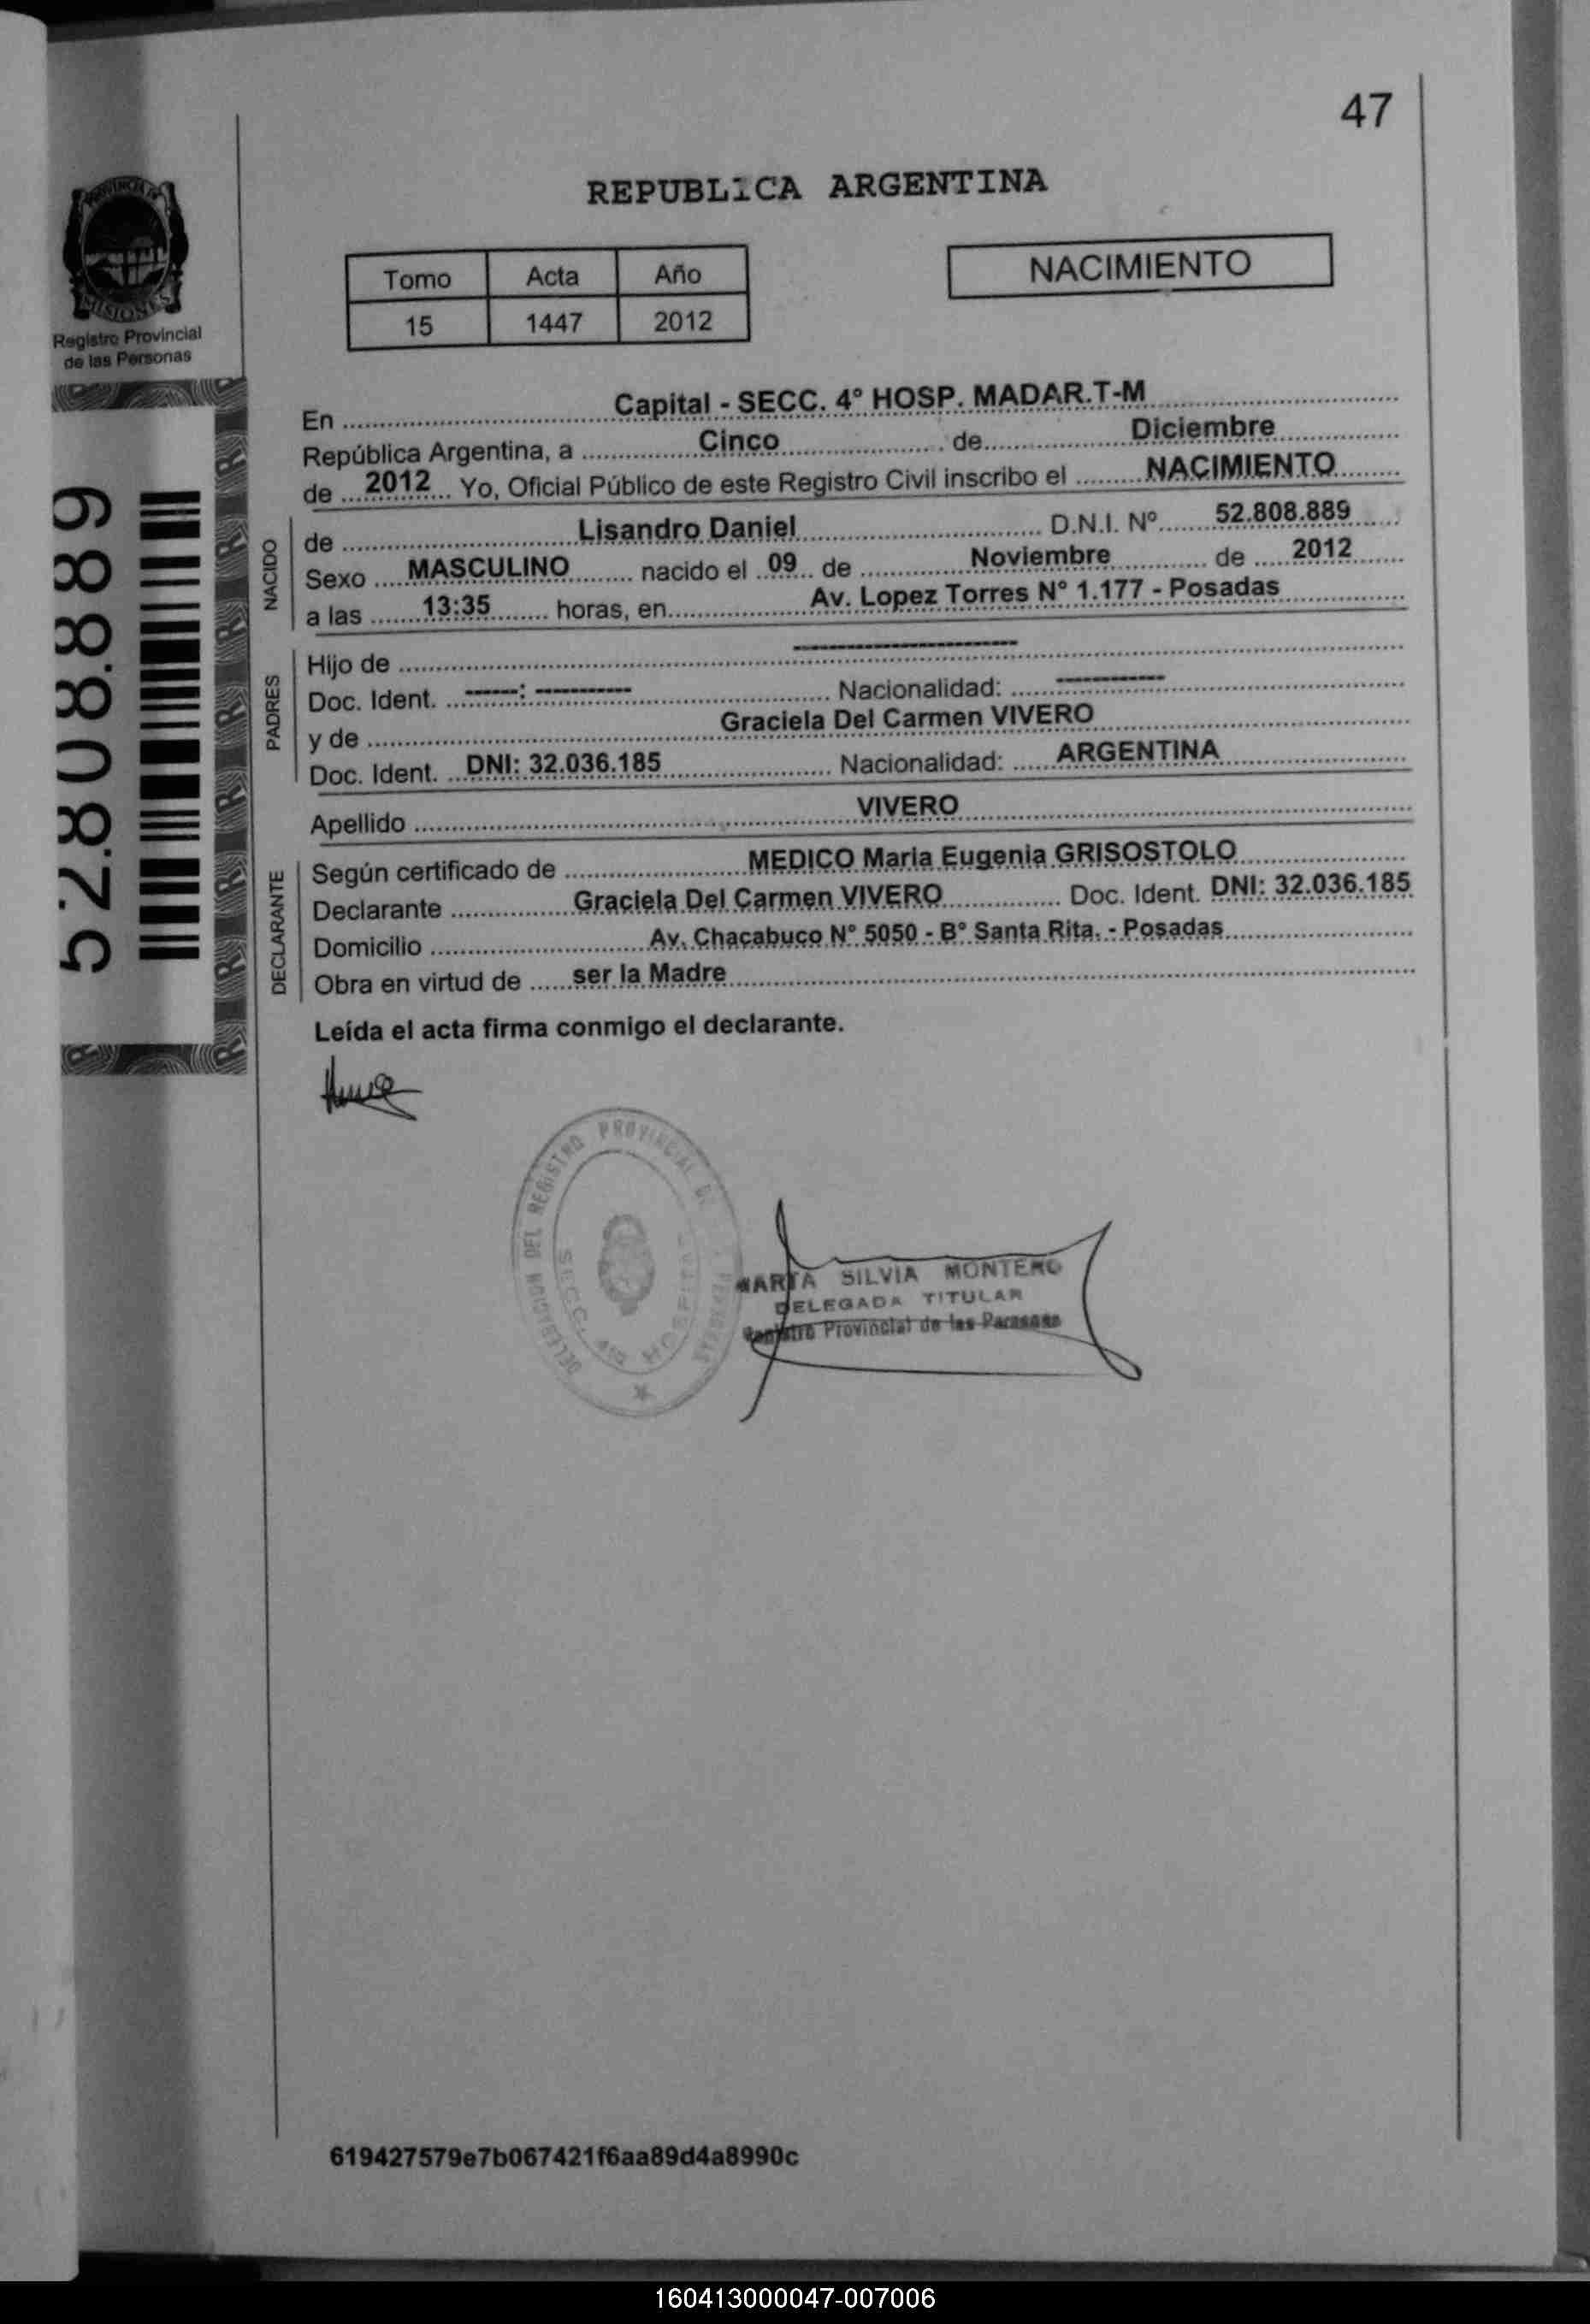 47
REPUBLICA ARGENTINA
PROVINCIA DE
MISIONES
Registro Provincial
de las Personas
Tomo Acta Año
15 1447 2012
NACIMIENTO
52.808.889
En Capital - SECC. 4° HOSP. MADAR.T-M
República Argentina, a Cinco de Diciembre
de 2012 Yo, Oficial Público de este Registro Civil inscribo el NACIMIENTO
NACIDO
de Lisandro Daniel D.N.I. Nº 52.808.889
Sexo MASCULINO nacido el 09 de Noviembre de 2012
a las 13:35 horas, en Av. Lopez Torres N° 1.177 - Posadas
PADRES
Hijo de ----------------------
Doc. Ident. ------: ---------- Nacionalidad: -----------
y de Graciela Del Carmen VIVERO
Doc. Ident. DNI: 32.036.185 Nacionalidad: ARGENTINA
Apellido VIVERO
DECLARANTE
Según certificado de MEDICO Maria Eugenia GRISOSTOLO
Declarante Graciela Del Carmen VIVERO Doc. Ident. DNI: 32.036.185
Domicilio Av. Chacabuco N° 5050 - B° Santa Rita. - Posadas
Obra en virtud de ser la Madre
Leída el acta firma conmigo el declarante.
DELEGACION DEL REGISTRO PROVINCIAL D. PERSONAS
SECC. 4ta HOSPITAL
MARTA SILVIA MONTERO
DELEGADA TITULAR
Registro Provincial de las Personas
619427579e7b067421f6aa89d4a8990c
160413000047-007006